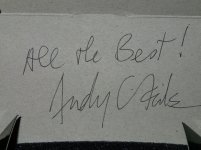 All the Best!
Andy